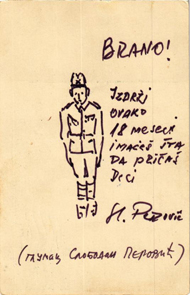 BRANO!
IZDRŽI
OVAKO
18 MESECI
IMAĆEŠ ŠTA
DA PRIČAŠ
DECI
Sl. Perović
(ГЛУМАЦ СЛОБОДАН ПЕРОВИЋ)